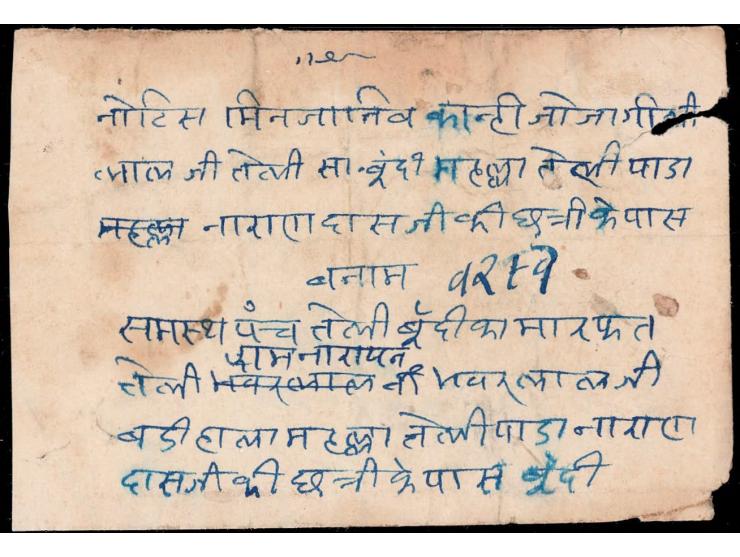 नोटिस मिनजानिब कान्ही जोजा गो
लाल जी तेली सा॰ बूंदी महल्ला तेली पाडा
महल्ला नाराएादासजी की छत्री के पास
बनाम
समस्थ पंच तेली बूंदी का मारफत
रामनारायन
तेली भवरलाल वो भवरलालजी
बडी हाला महल्ला तेली पाडा नाराएा
दासजी की छत्री के पास बूंदी